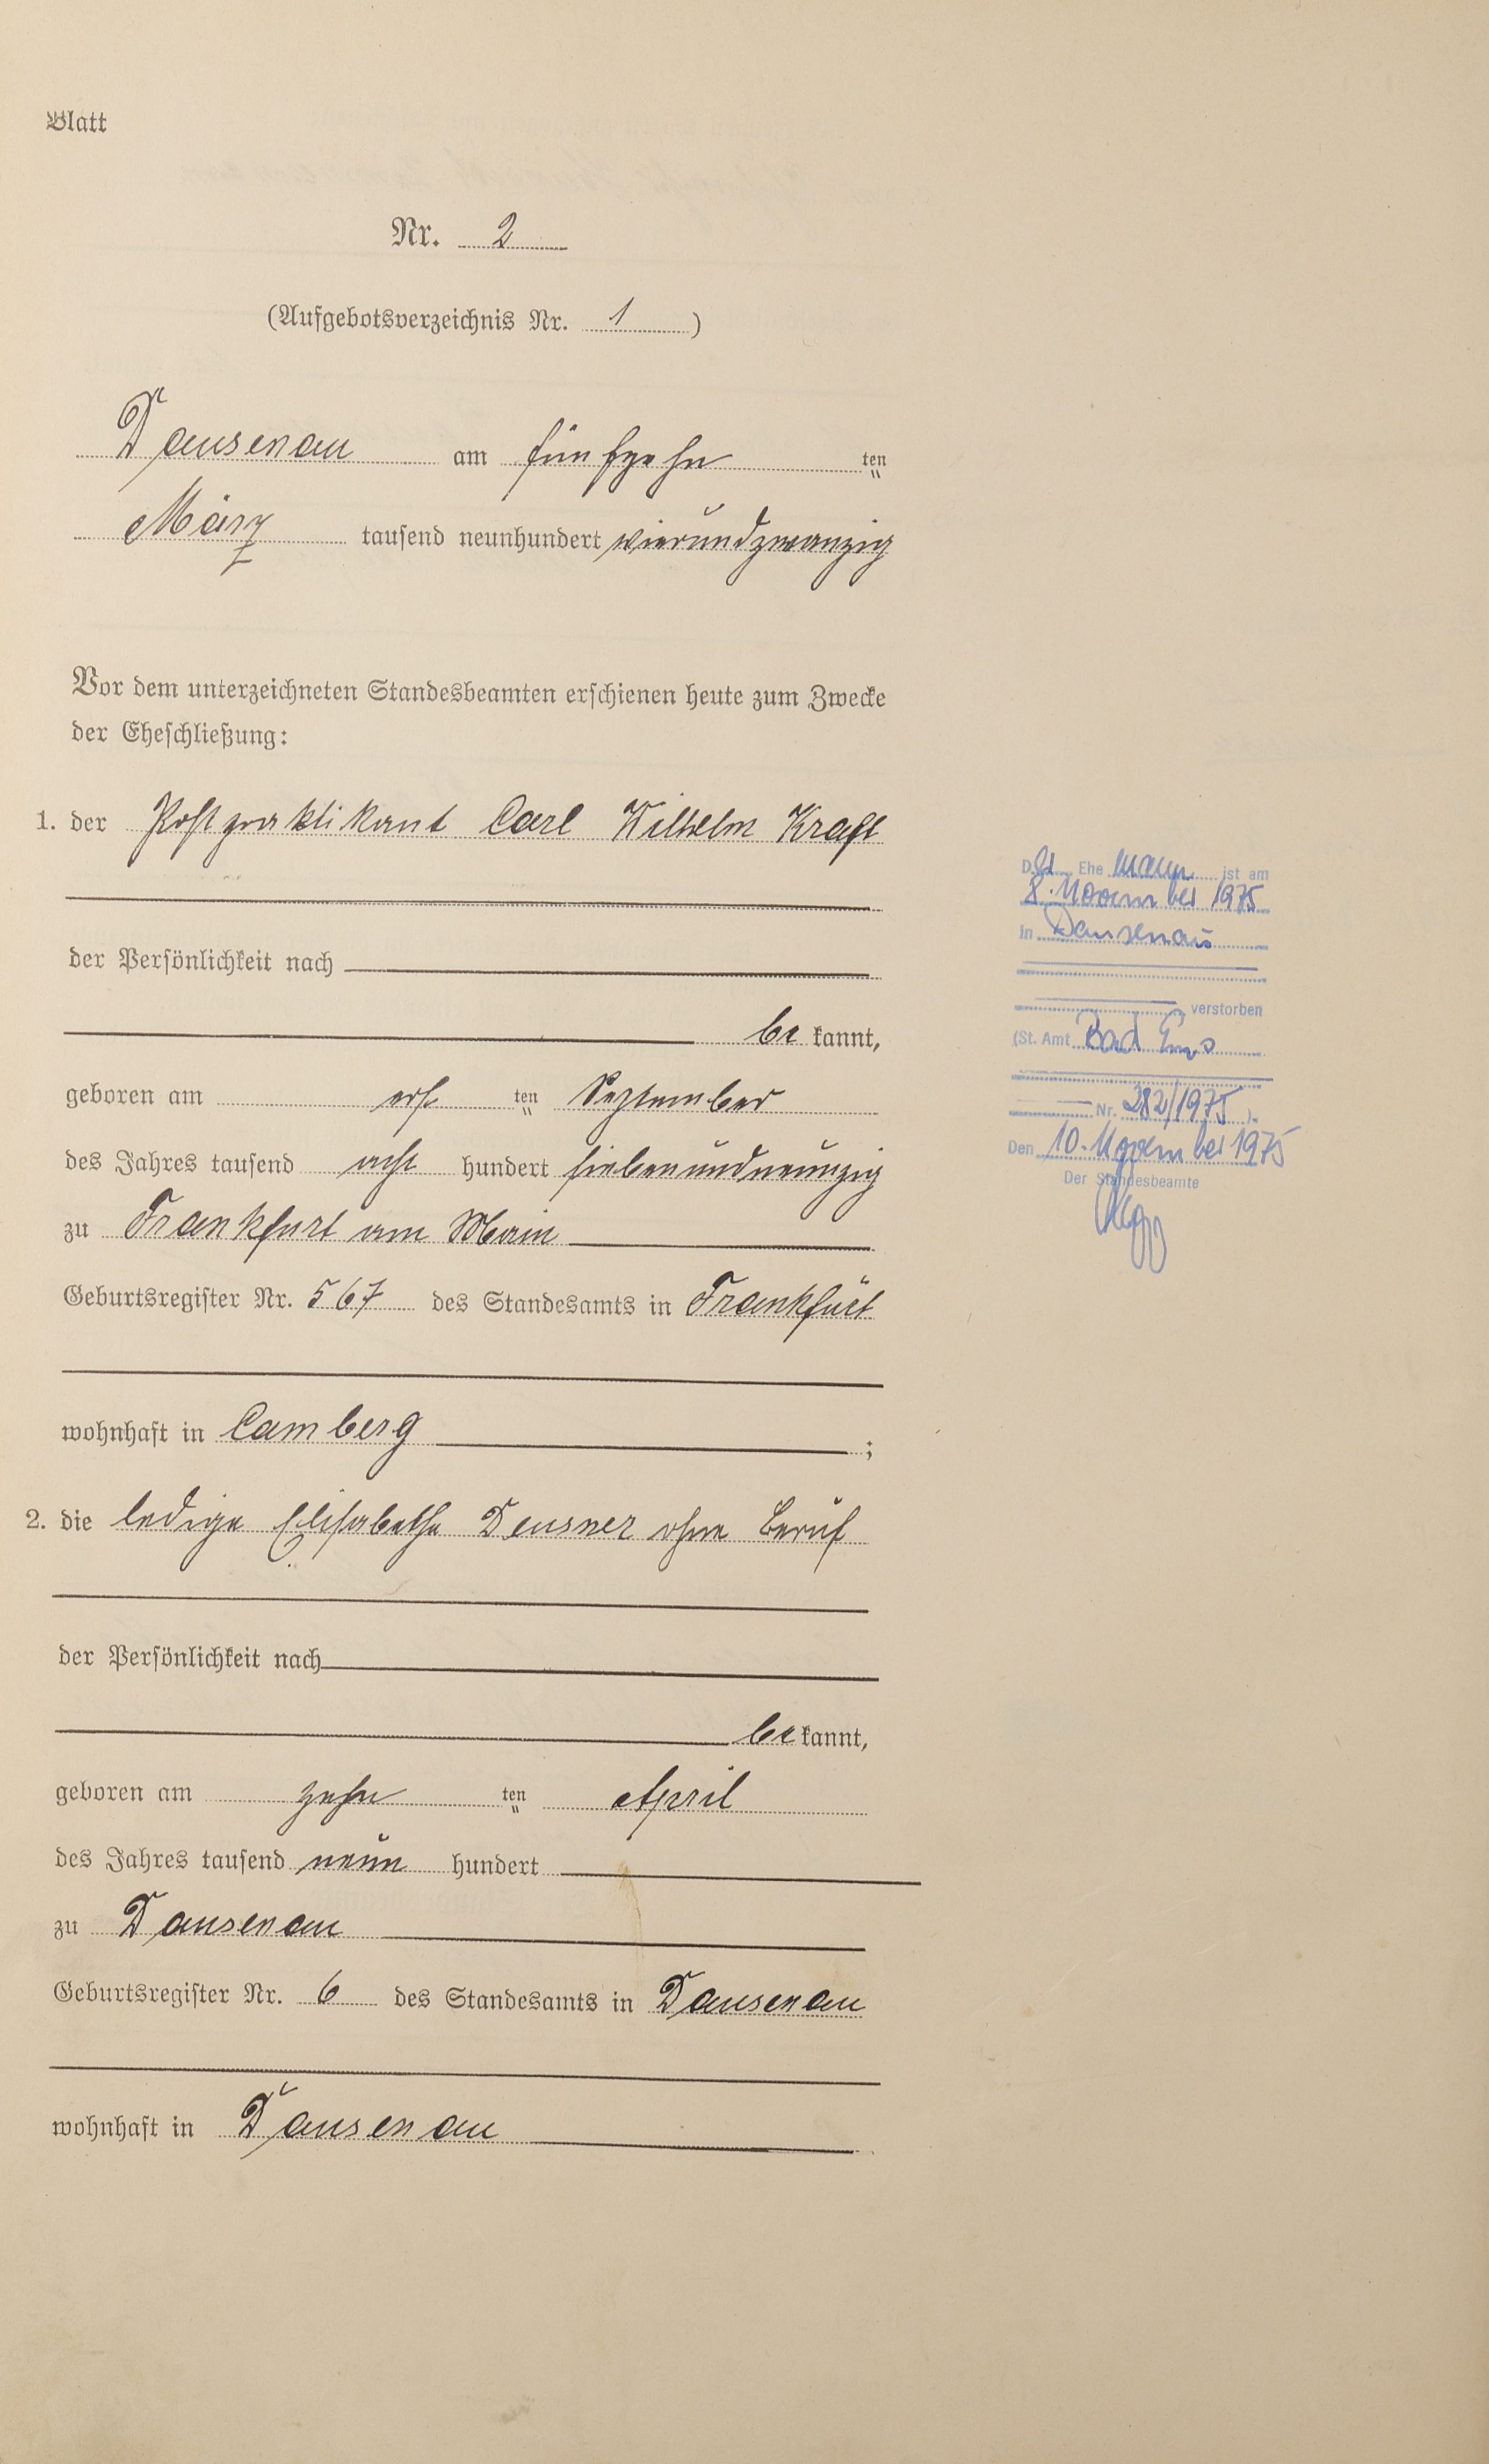 Blatt
Nr. 2
(Aufgebotsverzeichnis Nr. 1 )
Dausenau am fünfzehn ten
März tausend neunhundert vierundzwanzig
Vor dem unterzeichneten Standesbeamten erschienen heute zum Zwecke
der Eheschließung:
1. der Postpraktikant Carl Wilhelm Kraft
der Persönlichkeit nach
be kannt,
geboren am ers ten September
des Jahres tausend acht hundert siebenundneunzig
zu Frankfurt am Main
Geburtsregister Nr. 567 des Standesamts in Frankfurt
wohnhaft in Camberg ;
2. die ledige Elisabethe Deusner ohne Beruf
der Persönlichkeit nach
be kannt,
geboren am zehn ten April
des Jahres tausend neun hundert
zu Dausenau
Geburtsregister Nr. 6 des Standesamts in Dausenau
wohnhaft in Dausenau
Der Ehe mann ist am
8. November 1975
in Dausenau
verstorben
(St. Amt Bad Ems
Nr. 282/1975 ).
Den 10. November 1975
Der Standesbeamte